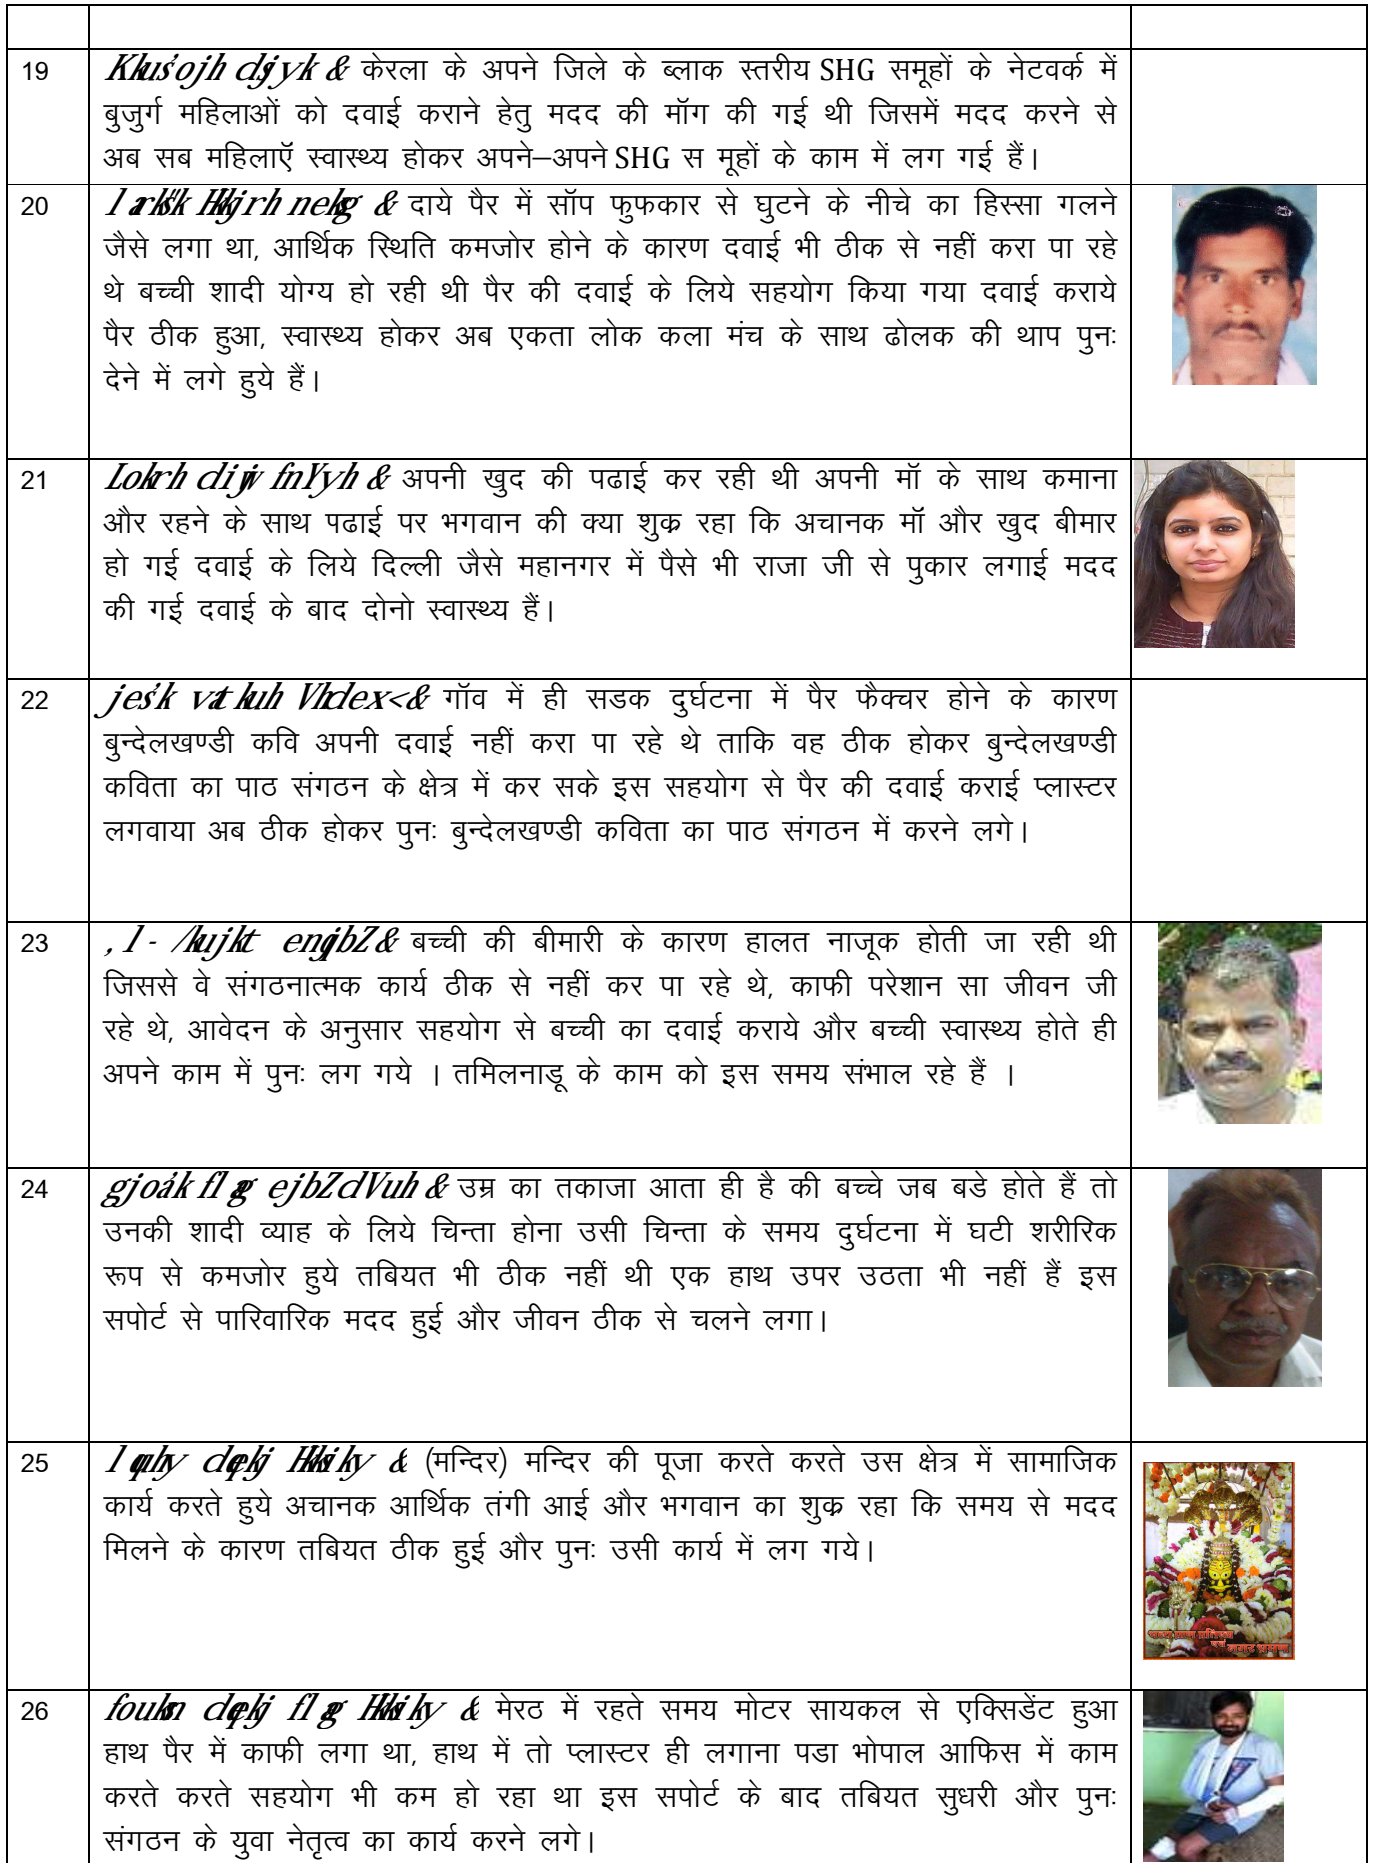 19
केरला के अपने जिले के ब्लाक स्तरीय SHG समूहों के नेटवर्क में
बुजुर्ग महिलाओं को दवाई कराने हेतु मदद की मॉग की गई थी जिसमें मदद करने से
अब सब महिलाऍ स्वास्थ्य होकर अपने–अपने SHG स मूहों के काम में लग गई हैं।
20
& दाये पैर में सॉप फुफकार से घुटने के नीचे का हिस्सा गलने
जैसे लगा था, आर्थिक स्थिति कमजोर होने के कारण दवाई भी ठीक से नहीं करा पा रहे
थे बच्ची शादी योग्य हो रही थी पैर की दवाई के लिये सहयोग किया गया दवाई कराये
पैर ठीक हुआ, स्वास्थ्य होकर अब एकता लोक कला मंच के साथ ढोलक की थाप पुनः
देने में लगे हुये हैं।
21
& अपनी खुद की पढाई कर रही थी अपनी मॉ के साथ कमाना
और रहने के साथ पढाई पर भगवान की क्या शुक्र रहा कि अचानक मॉ और खुद बीमार
हो गई दवाई के लिये दिल्ली जैसे महानगर में पैसे भी राजा जी से पुकार लगाई मदद
की गई दवाई के बाद दोनो स्वास्थ्य हैं।
22
& गॉव में ही सडक दुर्घटना में पैर फैक्चर होने के कारण
बुन्देलखण्डी कवि अपनी दवाई नहीं करा पा रहे थे ताकि वह ठीक होकर बुन्देलखण्डी
कविता का पाठ संगठन के क्षेत्र में कर सके इस सहयोग से पैर की दवाई कराई प्लास्टर
लगवाया अब ठीक होकर पुनः बुन्देलखण्डी कविता का पाठ संगठन में करने लगे।
23
& बच्ची की बीमारी के कारण हालत नाजूक होती जा रही थी
जिससे वे संगठनात्मक कार्य ठीक से नहीं कर पा रहे थे, काफी परेशान सा जीवन जी
रहे थे, आवेदन के अनुसार सहयोग से बच्ची का दवाई कराये और बच्ची स्वास्थ्य होते ही
अपने काम में पुनः लग गये । तमिलनाडू के काम को इस समय संभाल रहे हैं ।
24
& उम्र का तकाजा आता ही है की बच्चे जब बडे होते हैं तो
उनकी शादी व्याह के लिये चिन्ता होना उसी चिन्ता के समय दुर्घटना में घटी शरीरिक
रूप से कमजोर हुये तबियत भी ठीक नहीं थी एक हाथ उपर उठता भी नहीं हैं इस
सपोर्ट से पारिवारिक मदद हुई और जीवन ठीक से चलने लगा।
25
& (मन्दिर) मन्दिर की पूजा करते करते उस क्षेत्र में सामाजिक
कार्य करते हुये अचानक आर्थिक तंगी आई और भगवान का शुक्र रहा कि समय से मदद
मिलने के कारण तबियत ठीक हुई और पुनः उसी कार्य में लग गये।
26
& मेरठ में रहते समय मोटर सायकल से एक्सिडेंट हुआ
हाथ पैर में काफी लगा था, हाथ में तो प्लास्टर ही लगाना पडा भोपाल आफिस में काम
करते करते सहयोग भी कम हो रहा था इस सपोर्ट के बाद तबियत सुधरी और पुनः
संगठन के युवा नेतृत्व का कार्य करने लगे।